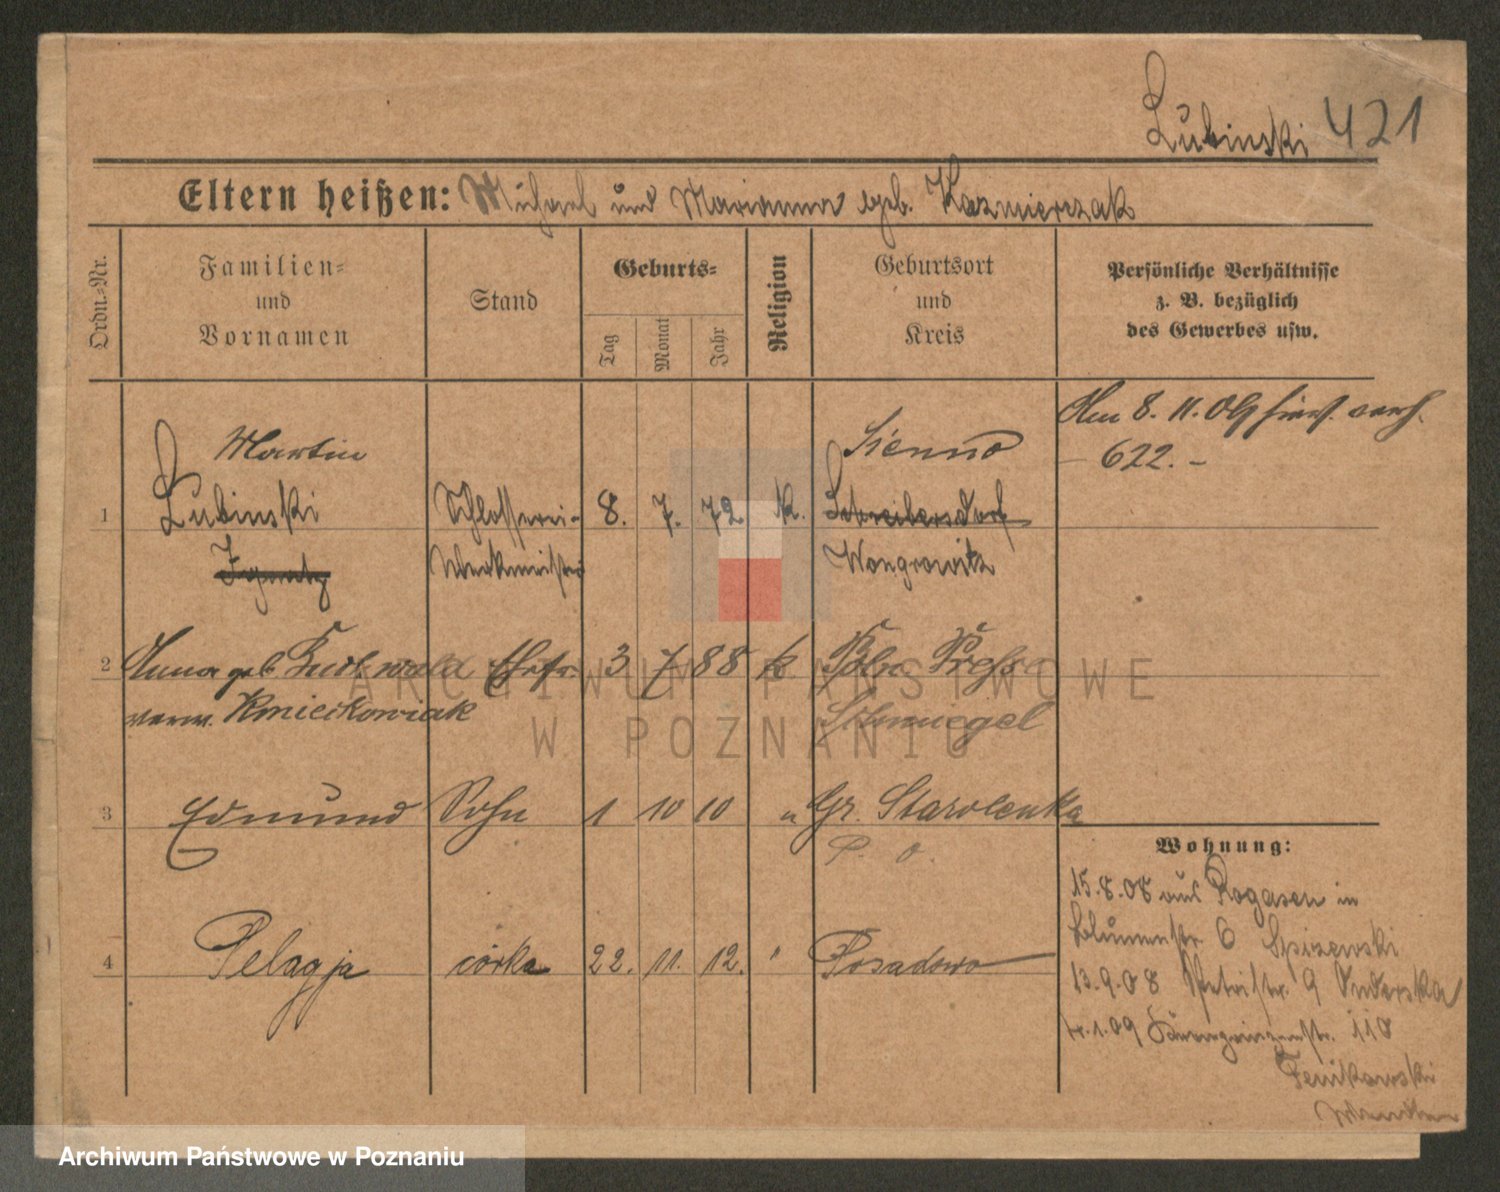 Lubinski 421
Eltern heißen: Michael und Marianna geb. Kazmierczak
Ordn.=Nr.
Familien=
und
Vornamen
Stand
Geburts=
Tag
Monat
Jahr
Religion
Geburtsort
und
Kreis
Persönliche Verhältnisse
z. B. bezüglich
des Gewerbes usw.
Am 8. 11. 09 verh.
- 622. -
Martin Sienno
1 Lubinski Schlosserei- 8. 7. 72 k. Schreibersdorf
Ignatz Werkmeister Wongrowitz
2 Anna geb. Ehefr. 3 7 88 k. Poln. Presse
verw. Kmiecikowiak Schmiegel
3 Edmund Sohn 1 10 10 " Gr. Starolenka
P. O.
4 Pelagja córka 22. 11. 12. " Posadowo
Wohnung:
15.8.08 aus Rogasen in
Blumenstr. 6
13.9.08 Petristr. 9
4.1.09 110
ARCHIWUM PAŃSTWOWE
W POZNANIU
Archiwum Państwowe w Poznaniu